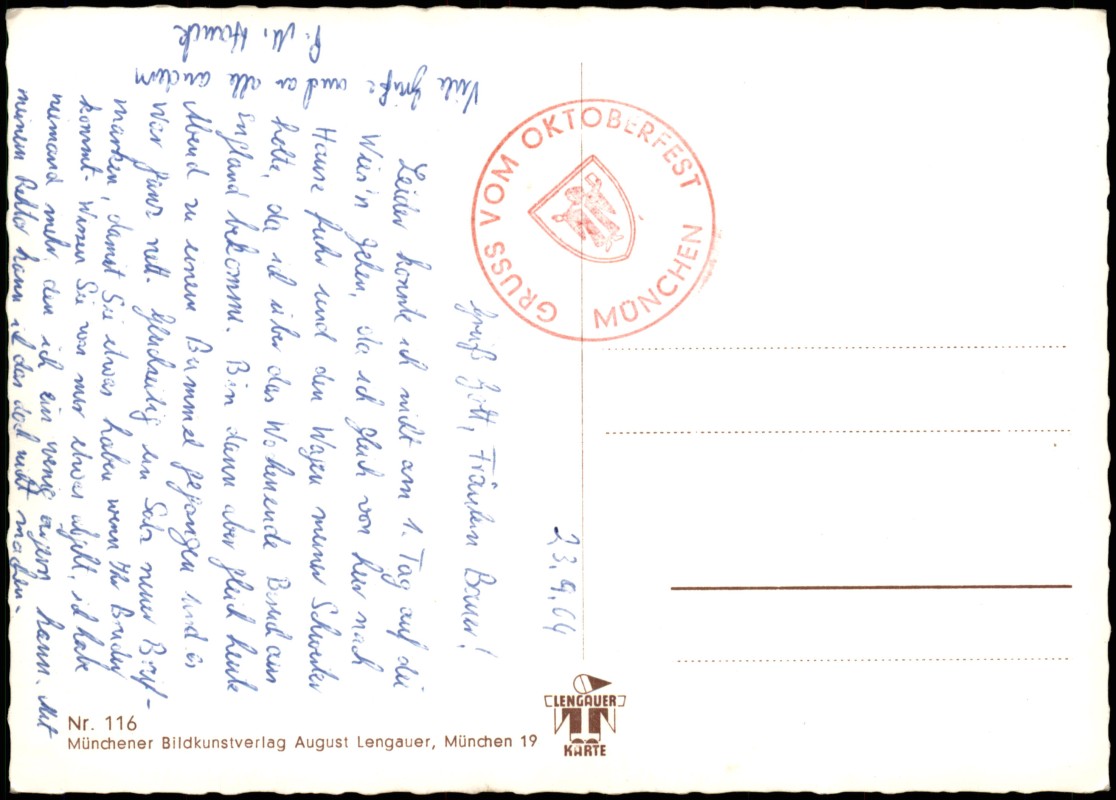 23.9.64
Grüß Gott, Fräulein Bauer!
Leider konnte ich nicht am 1. Tag auf die
Wies'n gehen, da ich gleich von hier nach
Hause fuhr und den Wagen meiner Schwester
holte, da ich über das Wochenende Besuch aus
England bekomme. Bin dann aber gleich heute
Abend zu einem Bummel gegangen und es
war ganz nett. Gleichzeitig ein Satz neuer Brief-
marken, damit Sie etwas haben wenn Ihr Bruder
kommt. Wissen Sie was mir etwas abgeht, ich habe
niemand mehr, den ich ein wenig ärgern kann. Mit
meinem Rektor kann ich das doch nicht machen.
Viele Grüße auch an alle andern
GRUSS VOM OKTOBERFEST
MÜNCHEN
LENGAUER
KARTE
Nr. 116
Münchener Bildkunstverlag August Lengauer, München 19